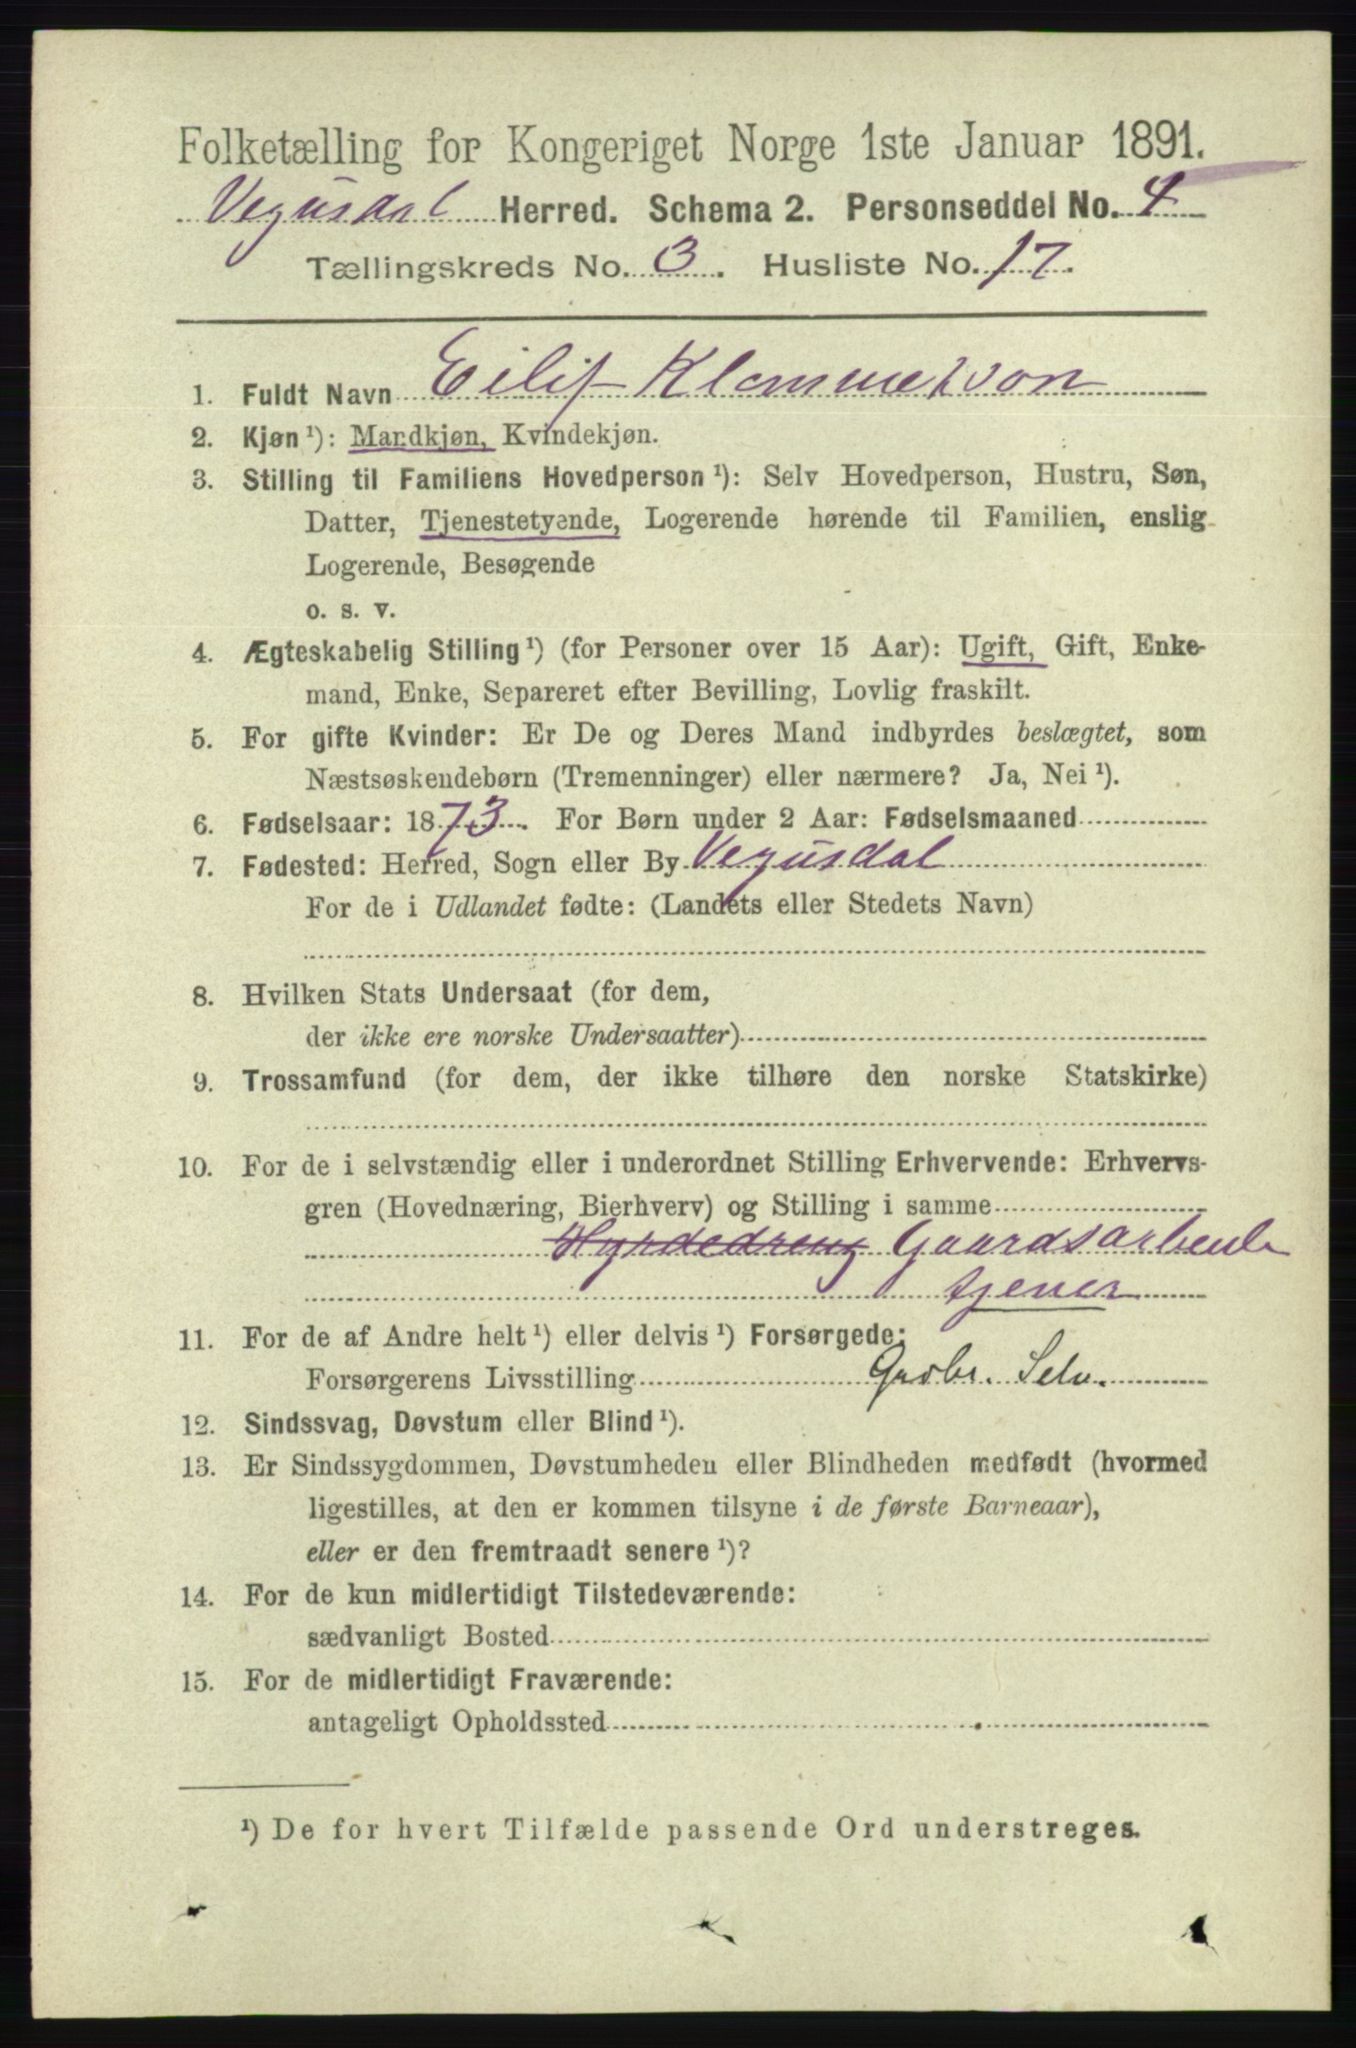 Folketælling for Kongeriget Norge 1ste Januar 1891.
Vegusdal Herred. Schema 2. Personseddel No. 4
Tællingskreds No. 3. Husliste No. 17.
1. Fuldt Navn Eilif Klommetson
2. Kjøn ¹): Mandkjøn, Kvindekjøn.
3. Stilling til Familiens Hovedperson ¹): Selv Hovedperson, Hustru, Søn,
Datter, Tjenestetyende, Logerende hørende til Familien, enslig
Logerende, Besøgende
o. s. v.
4. Ægteskabelig Stilling ¹) (for Personer over 15 Aar): Ugift, Gift, Enke-
mand, Enke, Separeret efter Bevilling, Lovlig fraskilt.
5. For gifte Kvinder: Er De og Deres Mand indbyrdes beslægtet, som
Næstsøskendebørn (Tremenninger) eller nærmere? Ja, Nei ¹).
6. Fødselsaar: 1873. For Børn under 2 Aar: Fødselsmaaned
7. Fødested: Herred, Sogn eller By Vegusdal
For de i Udlandet fødte: (Landets eller Stedets Navn)
8. Hvilken Stats Undersaat (for dem,
der ikke ere norske Undersaatter)
9. Trossamfund (for dem, der ikke tilhøre den norske Statskirke)
10. For de i selvstændig eller i underordnet Stilling Erhvervende: Erhvervs-
gren (Hovednæring, Bierhverv) og Stilling i samme
Hyrdedreng Gaardsarbeide
tjener
11. For de af Andre helt ¹) eller delvis ¹) Forsørgede:
Forsørgerens Livsstilling Gaabr. Selv.
12. Sindssvag, Døvstum eller Blind ¹).
13. Er Sindssygdommen, Døvstumheden eller Blindheden medfødt (hvormed
ligestilles, at den er kommen tilsyne i de første Barneaar),
eller er den fremtraadt senere ¹)?
14. For de kun midlertidigt Tilstedeværende:
sædvanligt Bosted
15. For de midlertidigt Fraværende:
antageligt Opholdssted
¹) De for hvert Tilfælde passende Ord understreges.